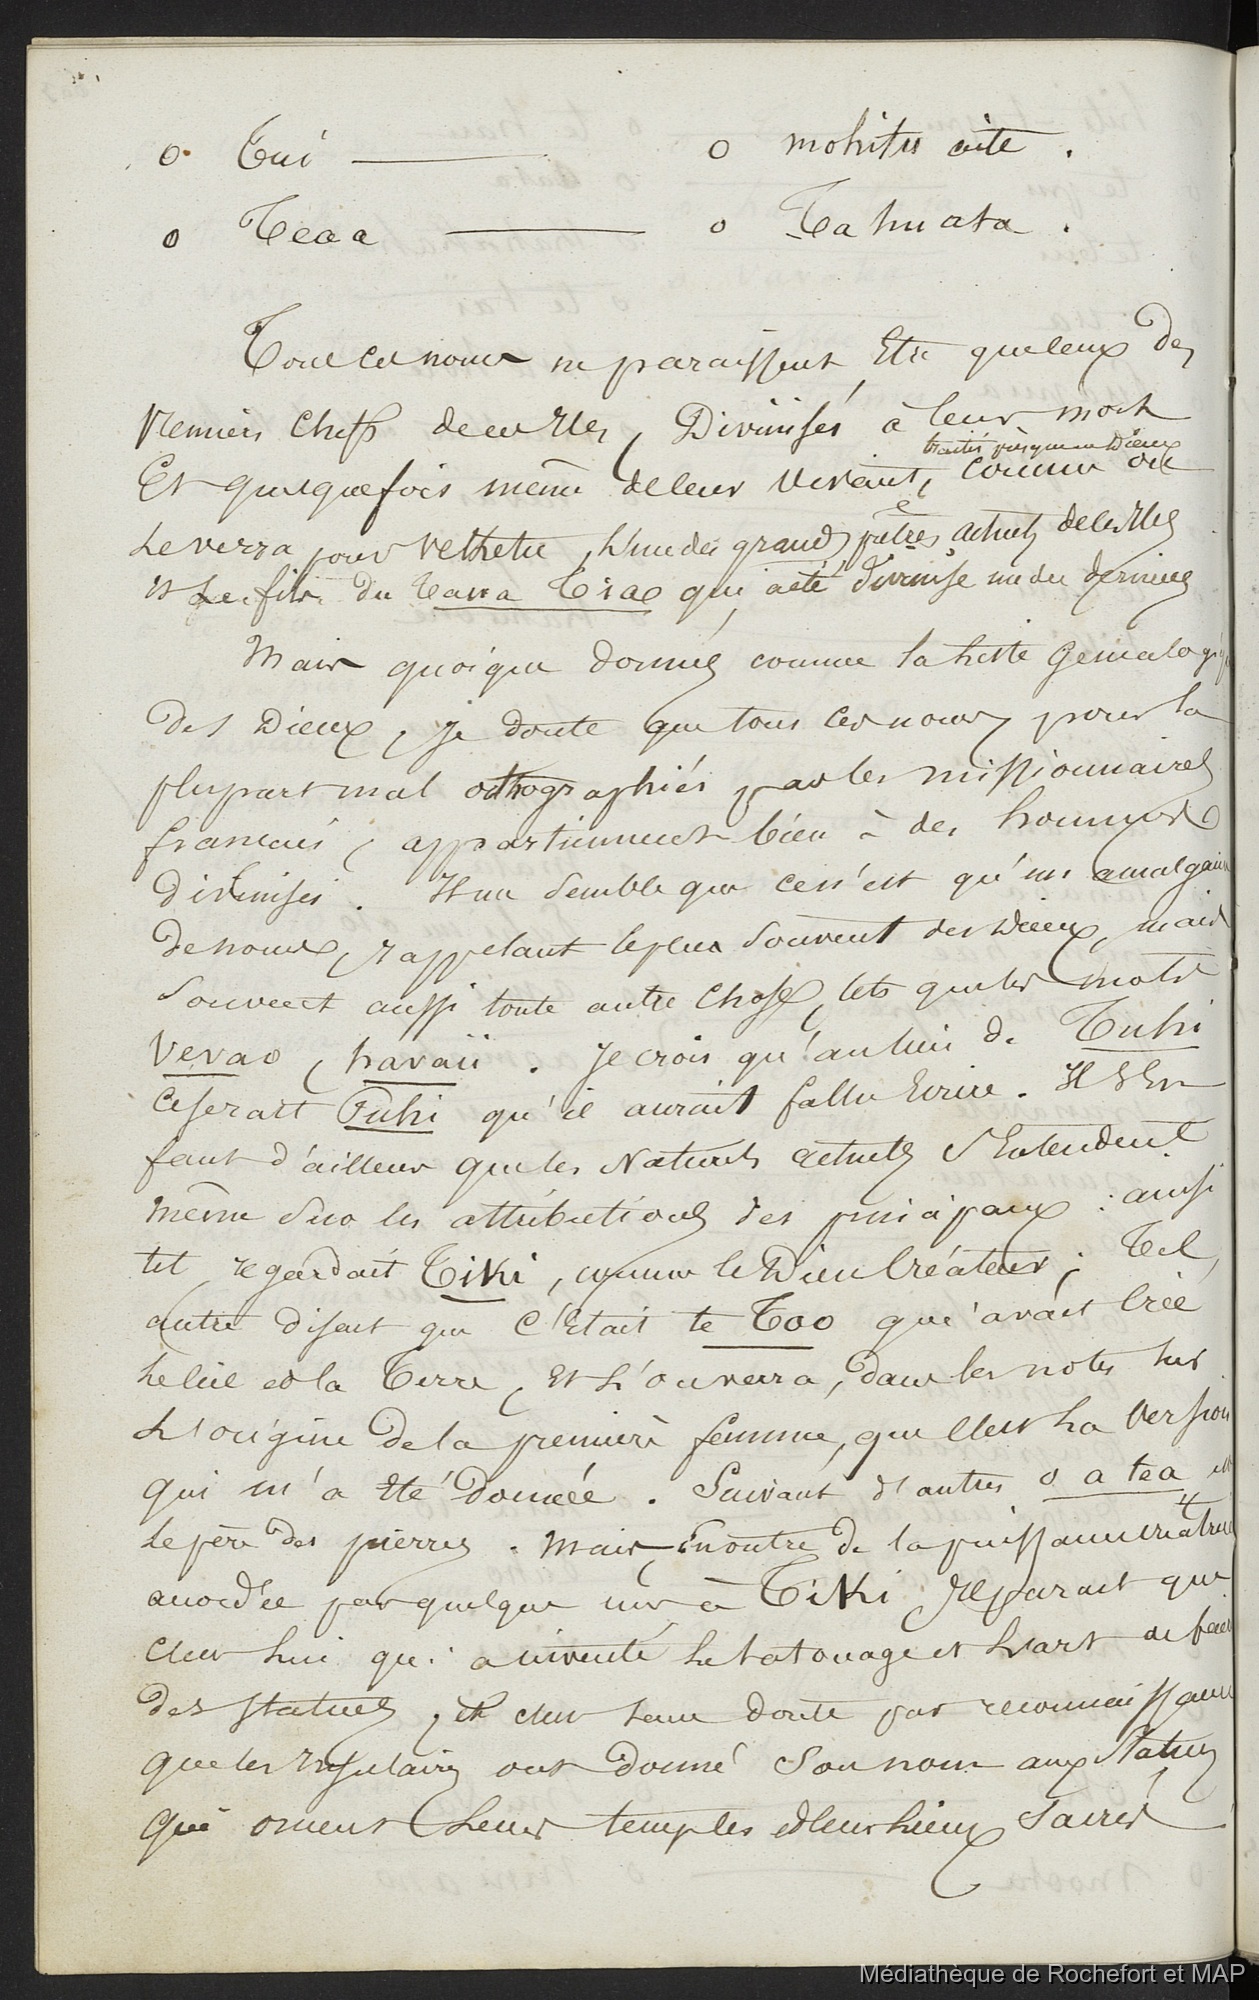 o Tui — o mohitu aite .
o Teaa — o Tahuata .
Tous ces noms ne paraissent Etre que ceux des
Premiers Chefs de ces Iles, Divinisés à leur mort
traités presque en Dieux
Et quelquefois même de leur vivant, comme on
Le verra pour Vekhetu, L'un des grands prêtres actuels de les Iles
et Le fils du Taua Tiao qui a été divinisé un des derniers
Mais quoique donnés comme la liste Généalogiq
des Dieux, je doute que tous ces noms pour la
plupart mal orthographiés par les missionnaires
francais, appartiennent bien à des hommes
divinisés. Il me semble que ce n'est qu'un amalgame
de noms, rappelant le plus souvent des Dieux, mais
souvent aussi toute autre chose, tels que les mots
Vevao, havaii. Je crois qu'au lieu de Tuhi
ce serait Fuhi qu'il aurait fallu Ecrire. Il S'En
faut d'ailleurs que les Naturels actuels S'Entendent
même Sur les attributions des principaux : ainsi
tel regardait Tiki, comme le Dieu Créateur ; Tel,
autre disait que C'Etait te Too qui avait Créé
Le Ciel et la Terre, Et L'on verra, dans les notes sur
L'origine de la première femme, que c'est La Version
qui m'a Eté donnée. Suivant d'autres o atea est
Le père des pierres. Mais, En outre de la puissance créatrice
accordée par quelques uns à Tiki, Il parait que
c'est Lui qui a inventé Le tatouage et L'art de faire
des Statues, et c'est sans doute par reconnaissance
que les Insulaires ont donné Son nom aux Statues
qui ornent Leurs temples et leurs Lieux Sacrés
Médiathèque de Rochefort et MAP